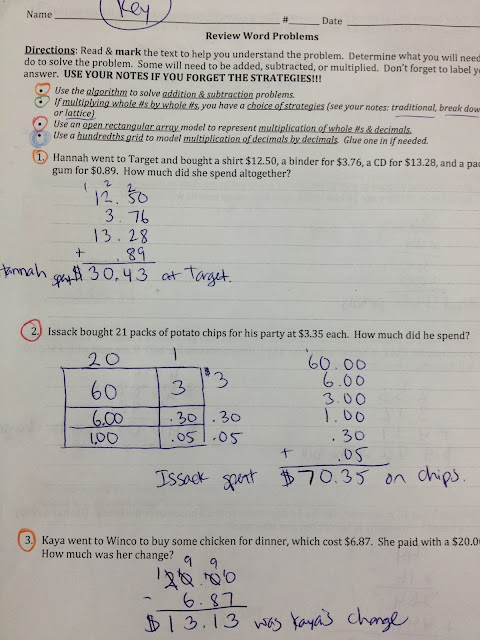 Key
Name # Date
Review Word Problems
Directions: Read & mark the text to help you understand the problem. Determine what you will need
do to solve the problem. Some will need to be added, subtracted, or multiplied. Don't forget to label y
answer. USE YOUR NOTES IF YOU FORGET THE STRATEGIES!!!
• Use the algorithm to solve addition & subtraction problems.
• If multiplying whole #s by whole #s, you have a choice of strategies (see your notes: traditional, break dow
or lattice)
• Use an open rectangular array model to represent multiplication of whole #s & decimals.
• Use a hundredths grid to model multiplication of decimals by decimals. Glue one in if needed.
1. Hannah went to Target and bought a shirt $12.50, a binder for $3.76, a CD for $13.28, and a pac
gum for $0.89. How much did she spend altogether?
1 2 2
12.50
3.76
13.28
+ .89
Hannah spent $30.43 at Target.
2. Issack bought 21 packs of potato chips for his party at $3.35 each. How much did he spend?
20 1
60 3 $3
6.00 .30 .30
1.00 .05 .05
1
60.00
6.00
3.00
1.00
.30
+ .05
Issack spent $70.35 on chips.
3. Kaya went to Winco to buy some chicken for dinner, which cost $6.87. She paid with a $20.0
How much was her change?
9 9
20.00
- 6.87
$13.13 was Kaya's change